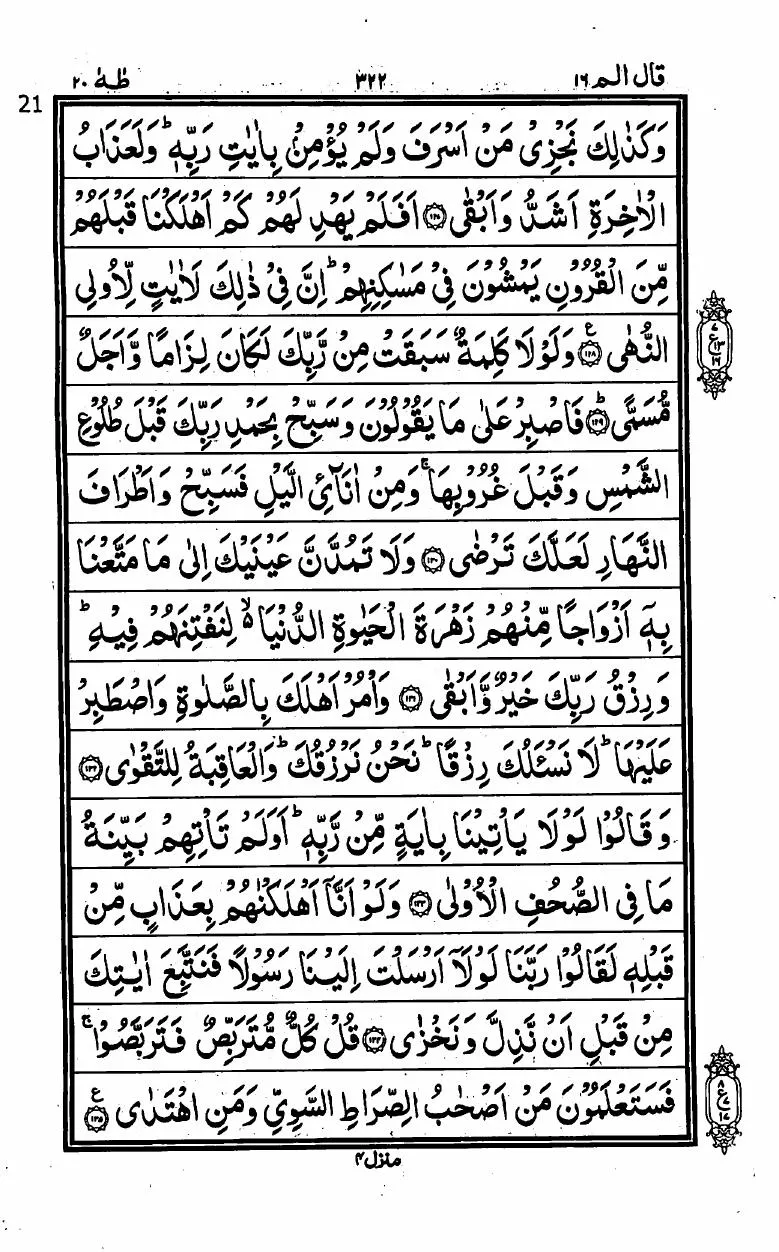 قال الم ١٦ ٣٢٢ طٰهٰ ٢٠
21
وَكَذٰلِكَ نَجْزِىْ مَنْ اَسْرَفَ وَلَمْ يُؤْمِنْۢ بِاٰيٰتِ رَبِّهٖ ؕ وَلَعَذَابُ
الْاٰخِرَةِ اَشَدُّ وَاَبْقٰى ﴿۱۲۷﴾ اَفَلَمْ يَهْدِ لَهُمْ كَمْ اَهْلَكْنَا قَبْلَهُمْ
مِّنَ الْقُرُوْنِ يَمْشُوْنَ فِىْ مَسٰكِنِهِمْ ؕ اِنَّ فِىْ ذٰلِكَ لَاٰيٰتٍ لِّاُولِى
النُّهٰى ﴿۱۲۸﴾ ع وَلَوْلَا كَلِمَةٌ سَبَقَتْ مِنْ رَّبِّكَ لَكَانَ لِزَامًا وَّاَجَلٌ
مُّسَمًّى ؕ ﴿۱۲۹﴾ فَاصْبِرْ عَلٰى مَا يَقُوْلُوْنَ وَسَبِّحْ بِحَمْدِ رَبِّكَ قَبْلَ طُلُوْعِ
الشَّمْسِ وَقَبْلَ غُرُوْبِهَا ۚ وَمِنْ اٰنَآئِ الَّيْلِ فَسَبِّحْ وَاَطْرَافَ
النَّهَارِ لَعَلَّكَ تَرْضٰى ﴿۱۳۰﴾ وَلَا تَمُدَّنَّ عَيْنَيْكَ اِلٰى مَا مَتَّعْنَا
بِهٖۤ اَزْوَاجًا مِّنْهُمْ زَهْرَةَ الْحَيٰوةِ الدُّنْيَا ۙ۬ لِنَفْتِنَهُمْ فِيْهِ ؕ
وَرِزْقُ رَبِّكَ خَيْرٌ وَّاَبْقٰى ﴿۱۳۱﴾ وَاْمُرْ اَهْلَكَ بِالصَّلٰوةِ وَاصْطَبِرْ
عَلَيْهَا ؕ لَا نَسْــَٔلُكَ رِزْقًا ؕ نَحْنُ نَرْزُقُكَ ؕ وَالْعَاقِبَةُ لِلتَّقْوٰى ﴿۱۳۲﴾
وَقَالُوْا لَوْلَا يَاْتِيْنَا بِاٰيَةٍ مِّنْ رَّبِّهٖ ؕ اَوَلَمْ تَاْتِهِمْ بَيِّنَةُ
مَا فِى الصُّحُفِ الْاُوْلٰى ﴿۱۳۳﴾ وَلَوْ اَنَّاۤ اَهْلَكْنٰهُمْ بِعَذَابٍ مِّنْ
قَبْلِهٖ لَقَالُوْا رَبَّنَا لَوْلَاۤ اَرْسَلْتَ اِلَيْنَا رَسُوْلًا فَنَتَّبِعَ اٰيٰتِكَ
مِنْ قَبْلِ اَنْ نَّذِلَّ وَنَخْزٰى ﴿۱۳۴﴾ قُلْ كُلٌّ مُّتَرَبِّصٌ فَتَرَبَّصُوْا ۚ
فَسَتَعْلَمُوْنَ مَنْ اَصْحٰبُ الصِّرَاطِ السَّوِىِّ وَمَنِ اهْتَدٰى ﴿۱۳۵﴾ ع
منزل ٤
٧ ع ١٣ ١٦
٨ ع ٧ ١٧